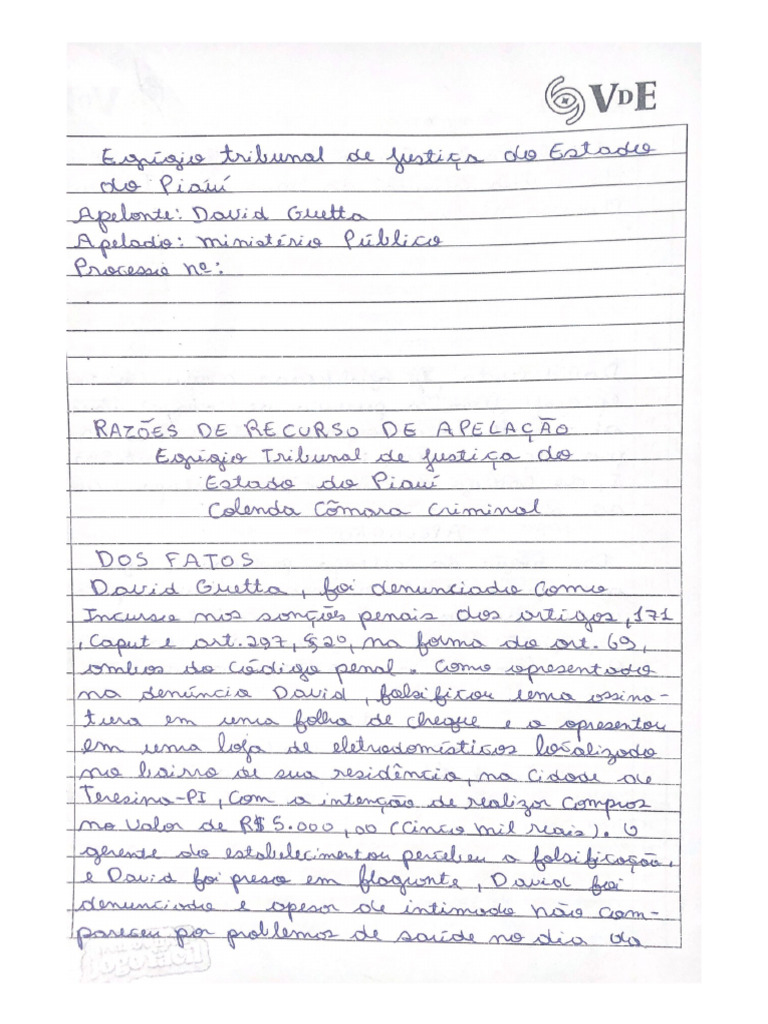 VDE
Egrígio tribunal de justiça do Estado
do Piauí
Apelante: David Guetta
Apelado: Ministério Público
Processo nº:
RAZÕES DE RECURSO DE APELAÇÃO
Egrígio Tribunal de justiça do
Estado do Piauí
Colenda Câmara Criminal
DOS FATOS
David Guetta, foi denunciado como
Incurso nos sanções penais dos artigos, 171
, Caput e art. 297, § 2º, na forma do art. 69,
ambos do Código penal. Como apresentado
na denúncia David, falsificou uma assina-
tura em uma folha de cheque e a apresentou
em uma loja de eletrodomésticos localizado
no bairro de sua residência, na cidade de
Teresina-PI, com a intenção de realizar compras
no valor de R$ 5.000,00 (cinco mil reais). O
gerente do estabelecimentou percebeu a falsificação,
e David foi preso em flagrante, David foi
denunciado e apesar de intimado não com-
pareceu por problemas de saúde no dia da